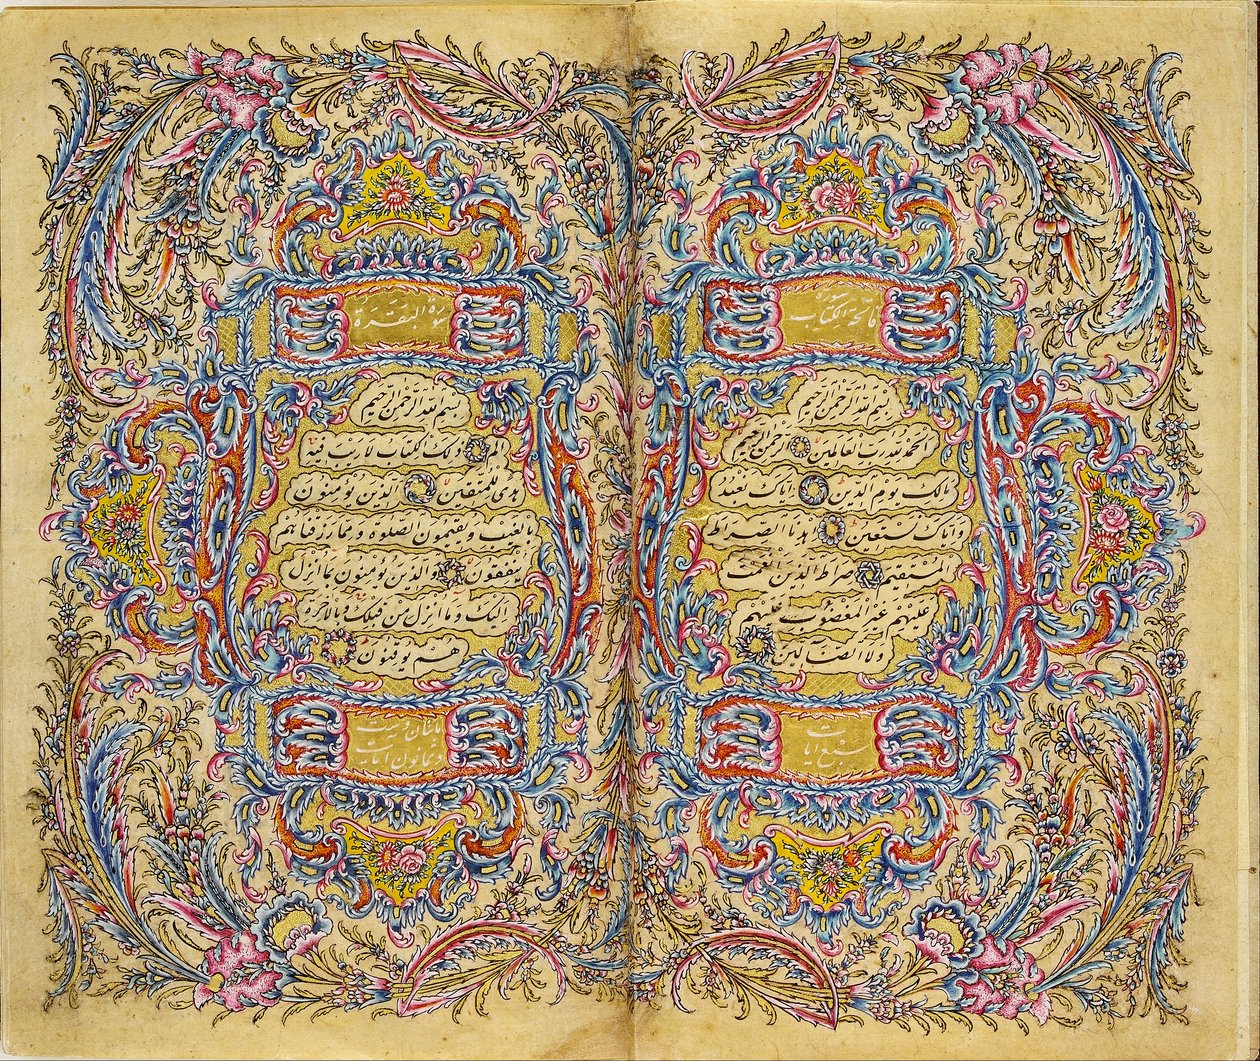 سورة
فاتحة الكتاب
بسم الله الرحمن الرحيم
الحمد لله رب العالمين الرحمن الرحيم
مالك يوم الدين اياك نعبد
واياك نستعين اهدنا الصراط
المستقيم صراط الذين انعمت
عليهم غير المغضوب عليهم
ولا الضالين
سبع ايات
سورة البقرة
بسم الله الرحمن الرحيم
الم ذلك الكتاب لا ريب فيه
هدى للمتقين الذين يؤمنون
بالغيب ويقيمون الصلوة ومما رزقناهم
ينفقون والذين يؤمنون بما انزل
اليك وما انزل من قبلك وبالآخرة
هم يوقنون
مائتان وست
وثمانون ايات